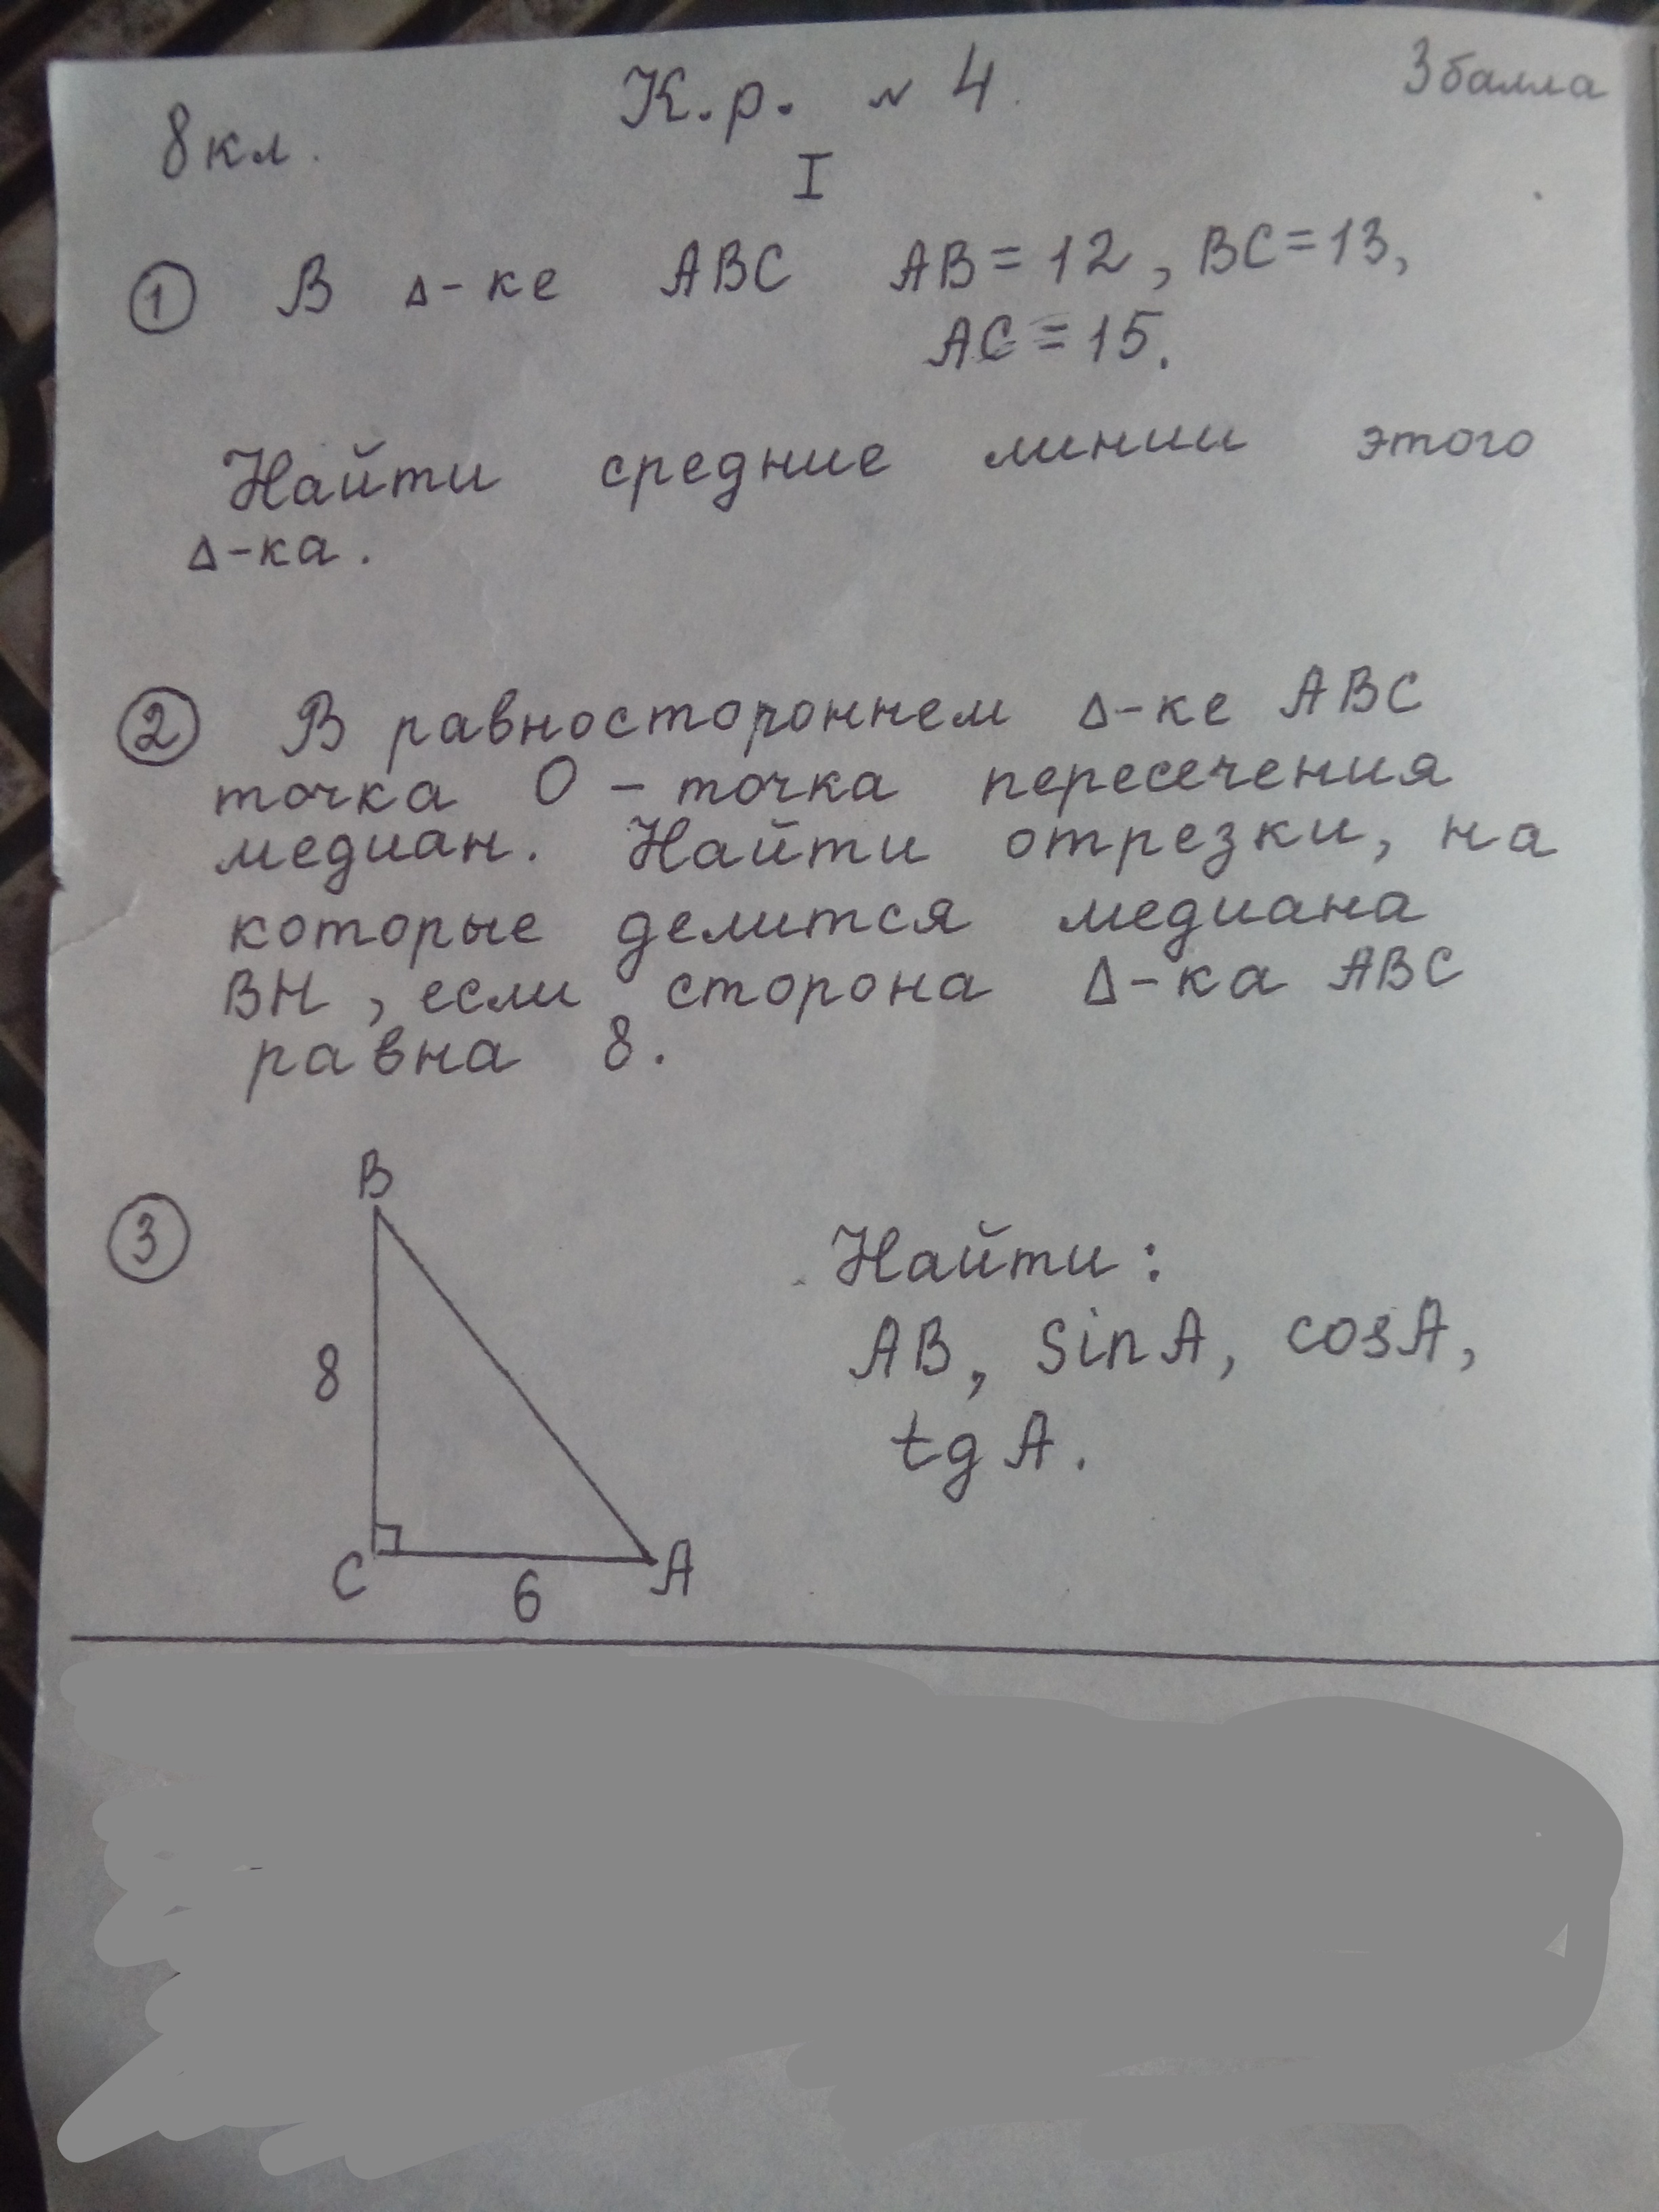 3 балла
8 кл.
К.р. № 4.
I
① В Δ-ке ABC AB = 12, BC = 13,
AC = 15.
Найти средние линии этого
Δ-ка.
② В равностороннем Δ-ке ABC
точка O – точка пересечения
медиан. Найти отрезки, на
которые делится медиана
BH, если сторона Δ-ка ABC
равна 8.
③
B
8
C
6
A
Найти:
AB, sin A, cos A,
tg A.